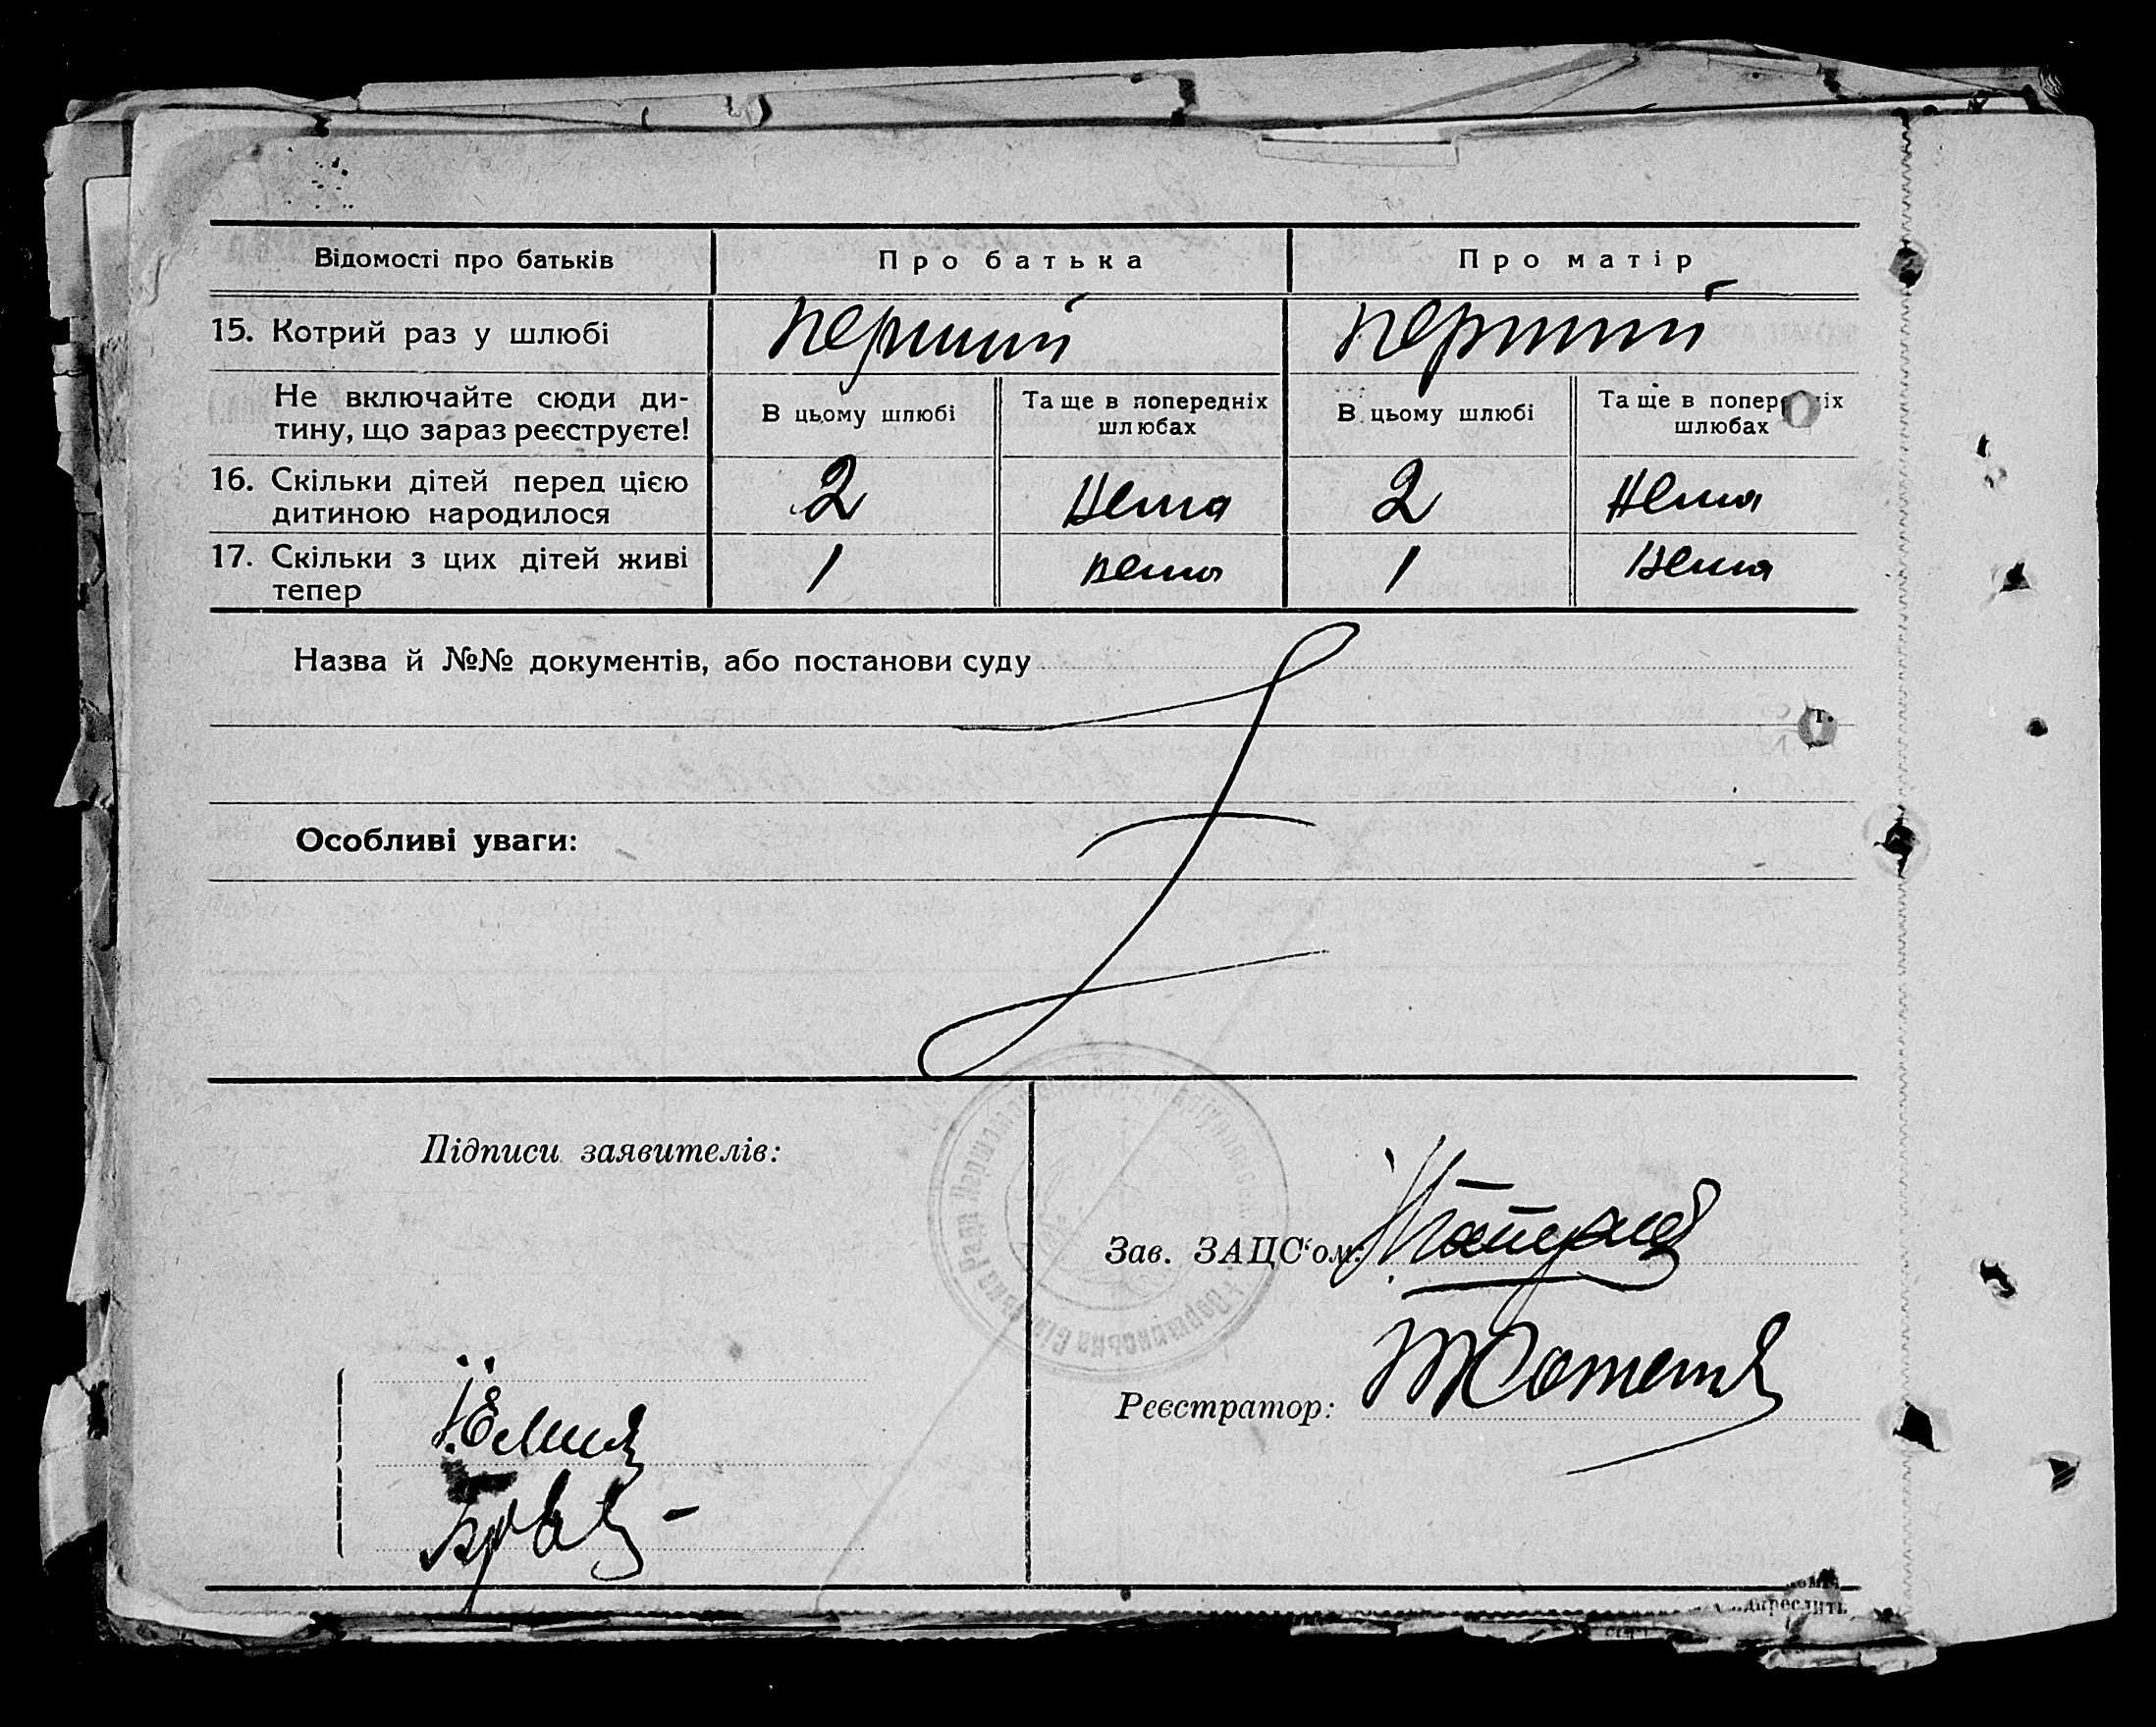 Відомості про батьків
Про батька
Про матір
15. Котрий раз у шлюбі
перший
перший
Не включайте сюди ди-
тину, що зараз реєструєте!
В цьому шлюбі
Та ще в попередніх
шлюбах
В цьому шлюбі
Та ще в попер іх
шлюбах
16. Скільки дітей перед цією
дитиною народилося
2
Нема
2
Нема
17. Скільки з цих дітей живі
тепер
1
нема
1
нема
Назва й №№ документів, або постанови суду
Особливі уваги:
Підписи заявителів:
Зав. ЗАЦС‘ом:
Реєстратор: